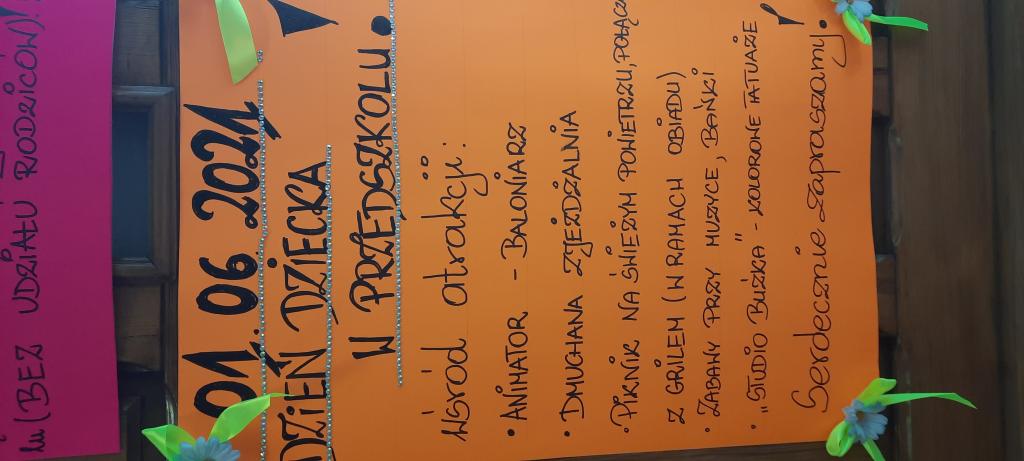 (BEZ UDZIAŁU RODZICÓW)!
01. 06. 2021
DZIEŃ DZIECKA
W PRZEDSZKOLU.
Wśród atrakcji:
• ANIMATOR - BALONIARZ
• DMUCHANA ZJEŻDŻALNIA
• PIKNIK NA ŚWIEŻYM POWIETRZU, POŁĄCZ
Z GRILEM (W RAMACH OBIADU)
• ZABAWY PRZY MUZYCE, BAŃKI
• "STUDIO BUŹKA" - KOLOROWE TATUAŻE
Serdecznie Zapraszamy!